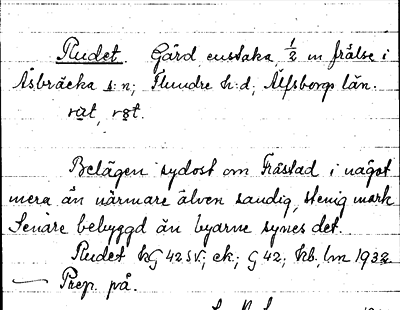 Rudet. Gård enstaka, 1/2 m frälse i
Åsbräcka s:n; Flundre h:d; Älfsborgs län.
Belägen sydost om Fråstad i något
mera än närmare älven sandig, stenig mark
Senare bebyggd än byarne synes det.
Rudet kG 42 SV; ek; G 42; kb, lm 1932
— Prep. på.